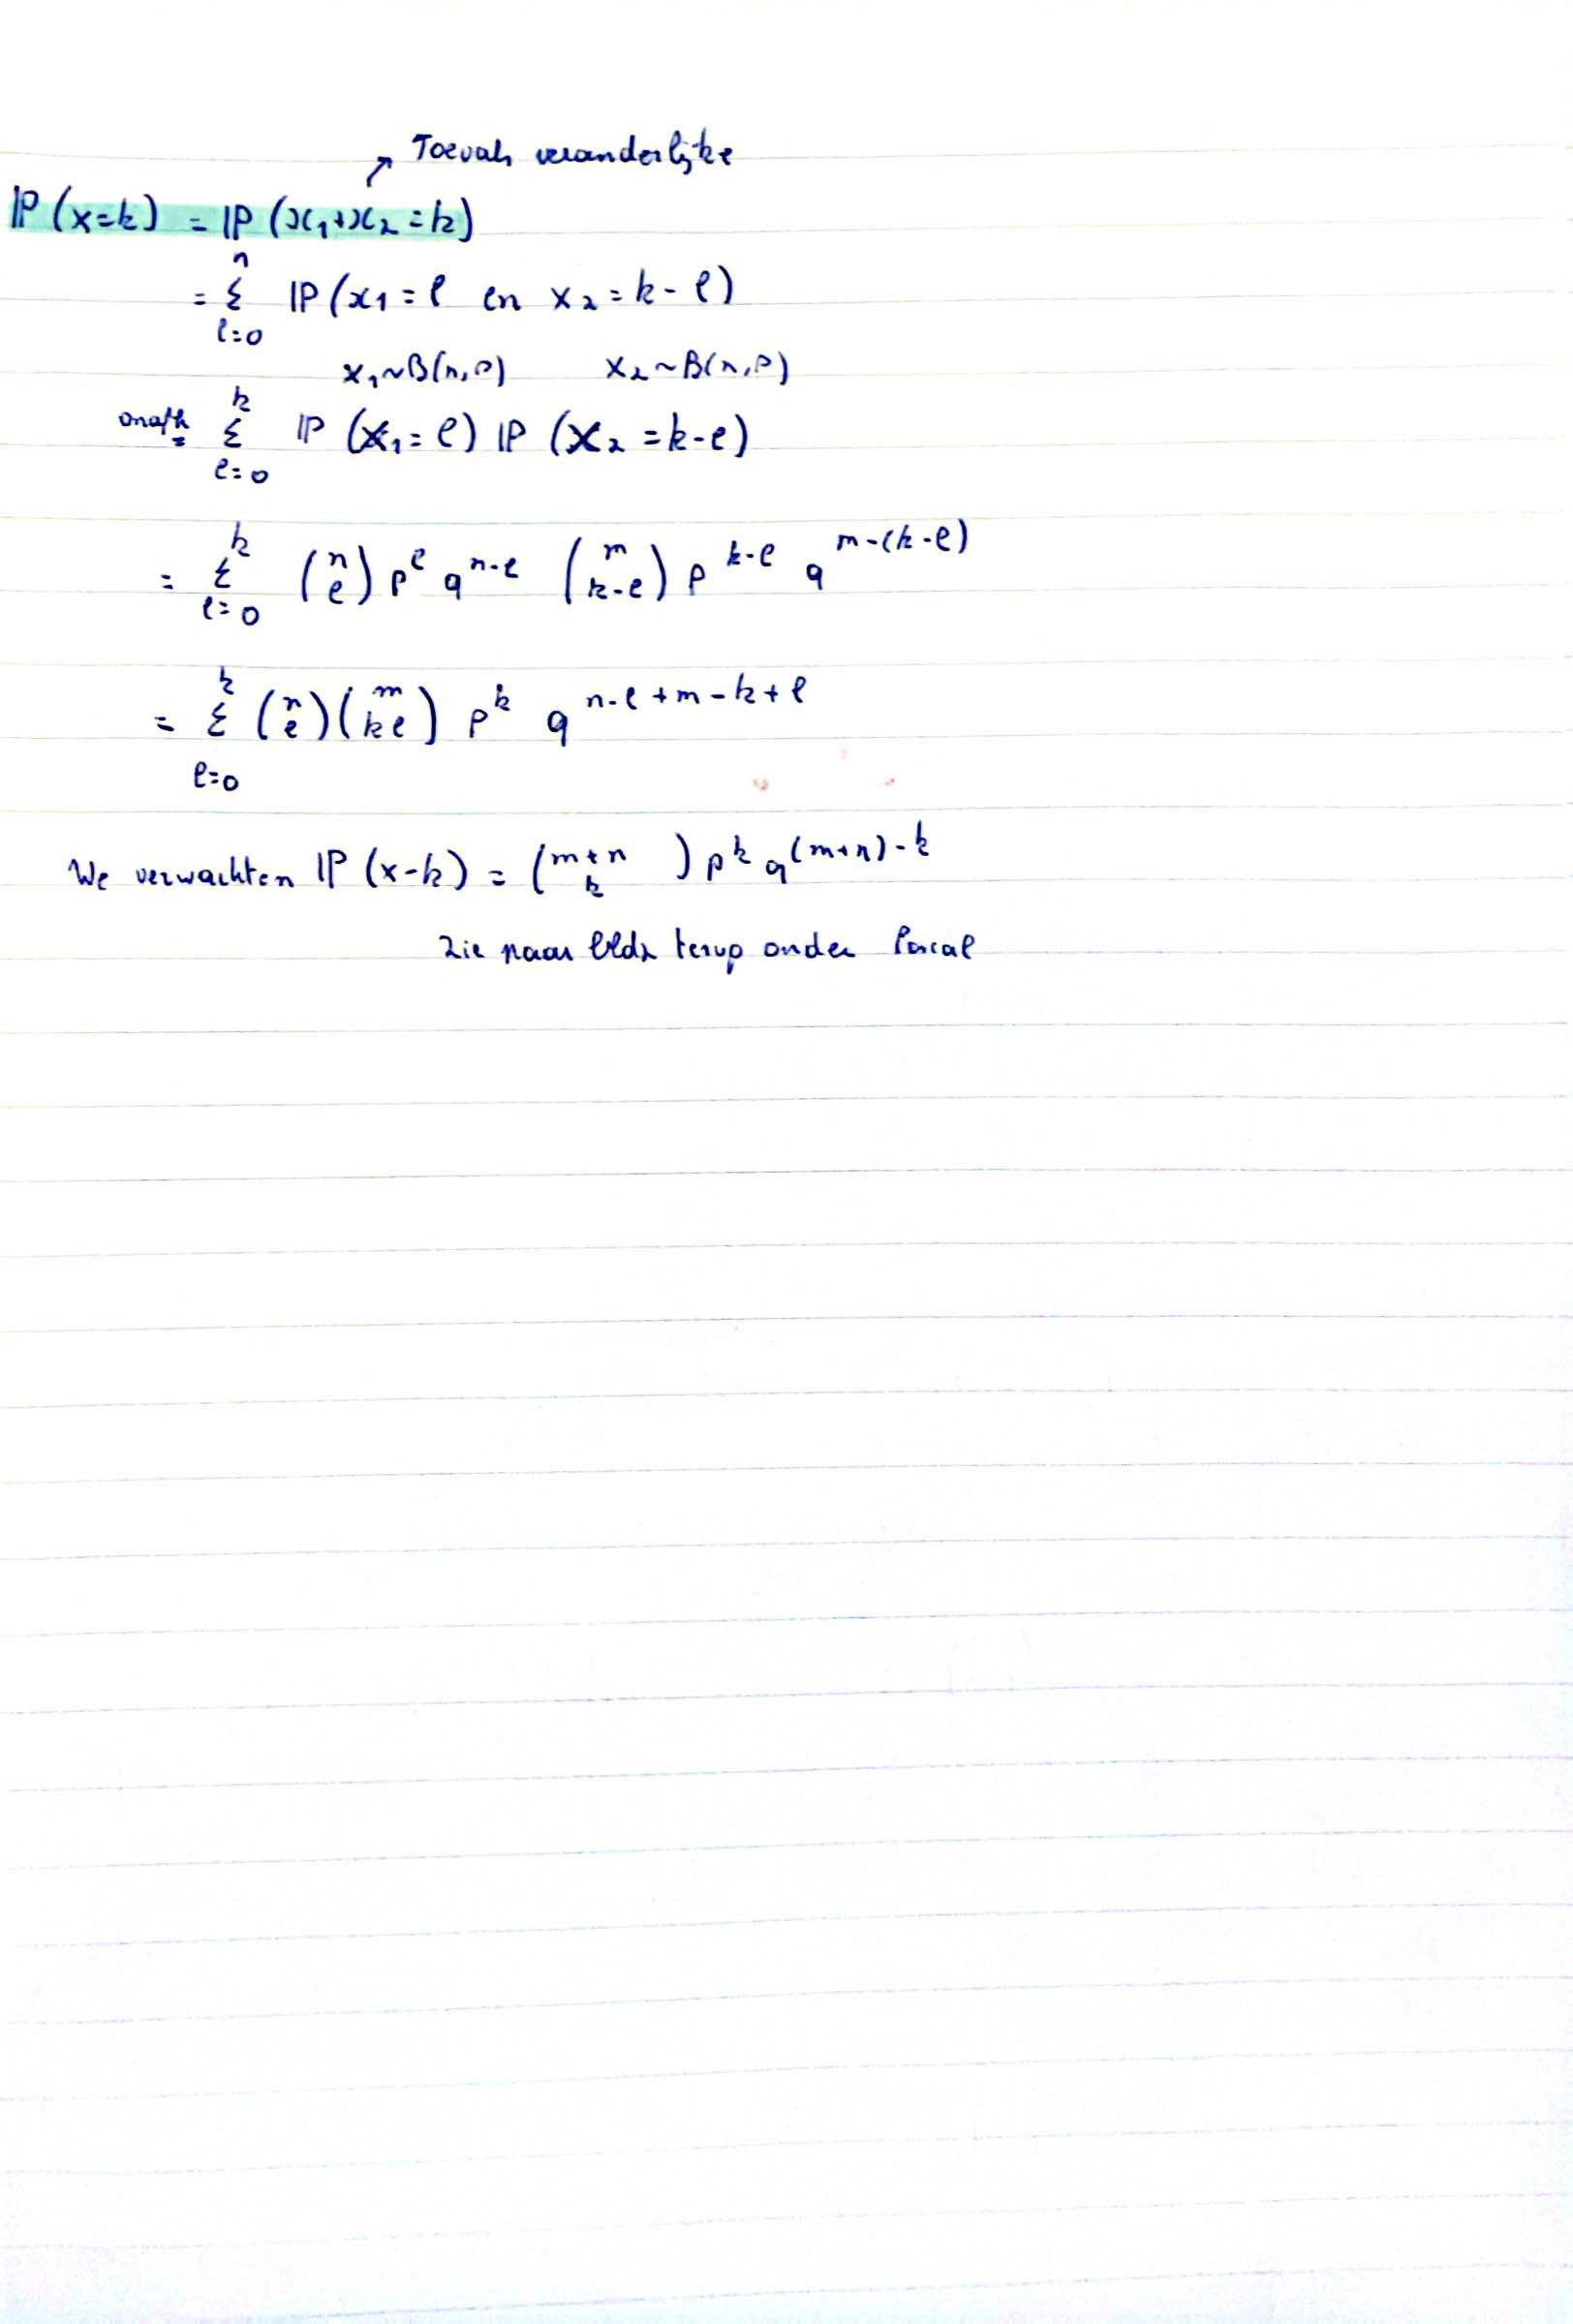 ↗ Toevals veranderlijke
ℙ(x=k) = ℙ(x₁+x₂=k)
= Σ_{l=0}^{n} ℙ(x₁=l en x₂=k-l)
x₁~B(n,p) x₂~B(n,p)
onafh = Σ_{l=0}^{k} ℙ(x₁=l) ℙ(x₂=k-l)
= Σ_{l=0}^{k} (n l) p^l q^{n-l} (m k-l) p^{k-l} q^{m-(k-l)}
= Σ_{l=0}^{k} (n l)(m kl) p^k q^{n-l+m-k+l}
We verwachten ℙ(x-k) = (m+n k) p^k q^{(m+n)-k}
zie naar terug onder Pascal